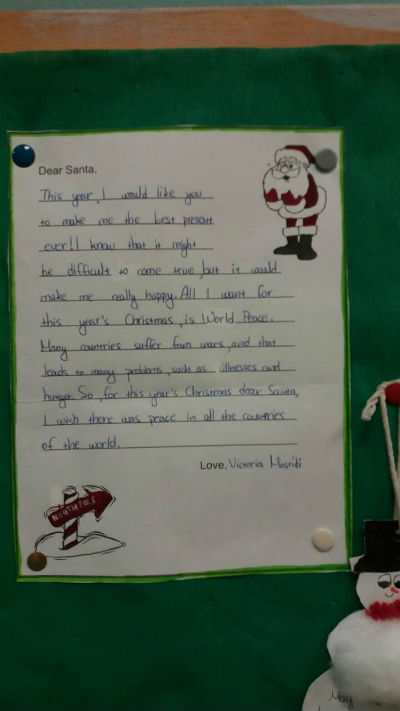 Dear Santa,
This year, I would like you
to make me the best present
ever! I know that it might
be difficult to come true, but it would
make me really happy. All I want for
this year's Christmas, is World Peace.
Many countries suffer from wars, and that
leads to many problems, such as illnesses and
hunger. So, for this year's Christmas dear Santa,
I wish there was peace in all the countries
of the world.
Love, Victoria
NORTH POLE
May